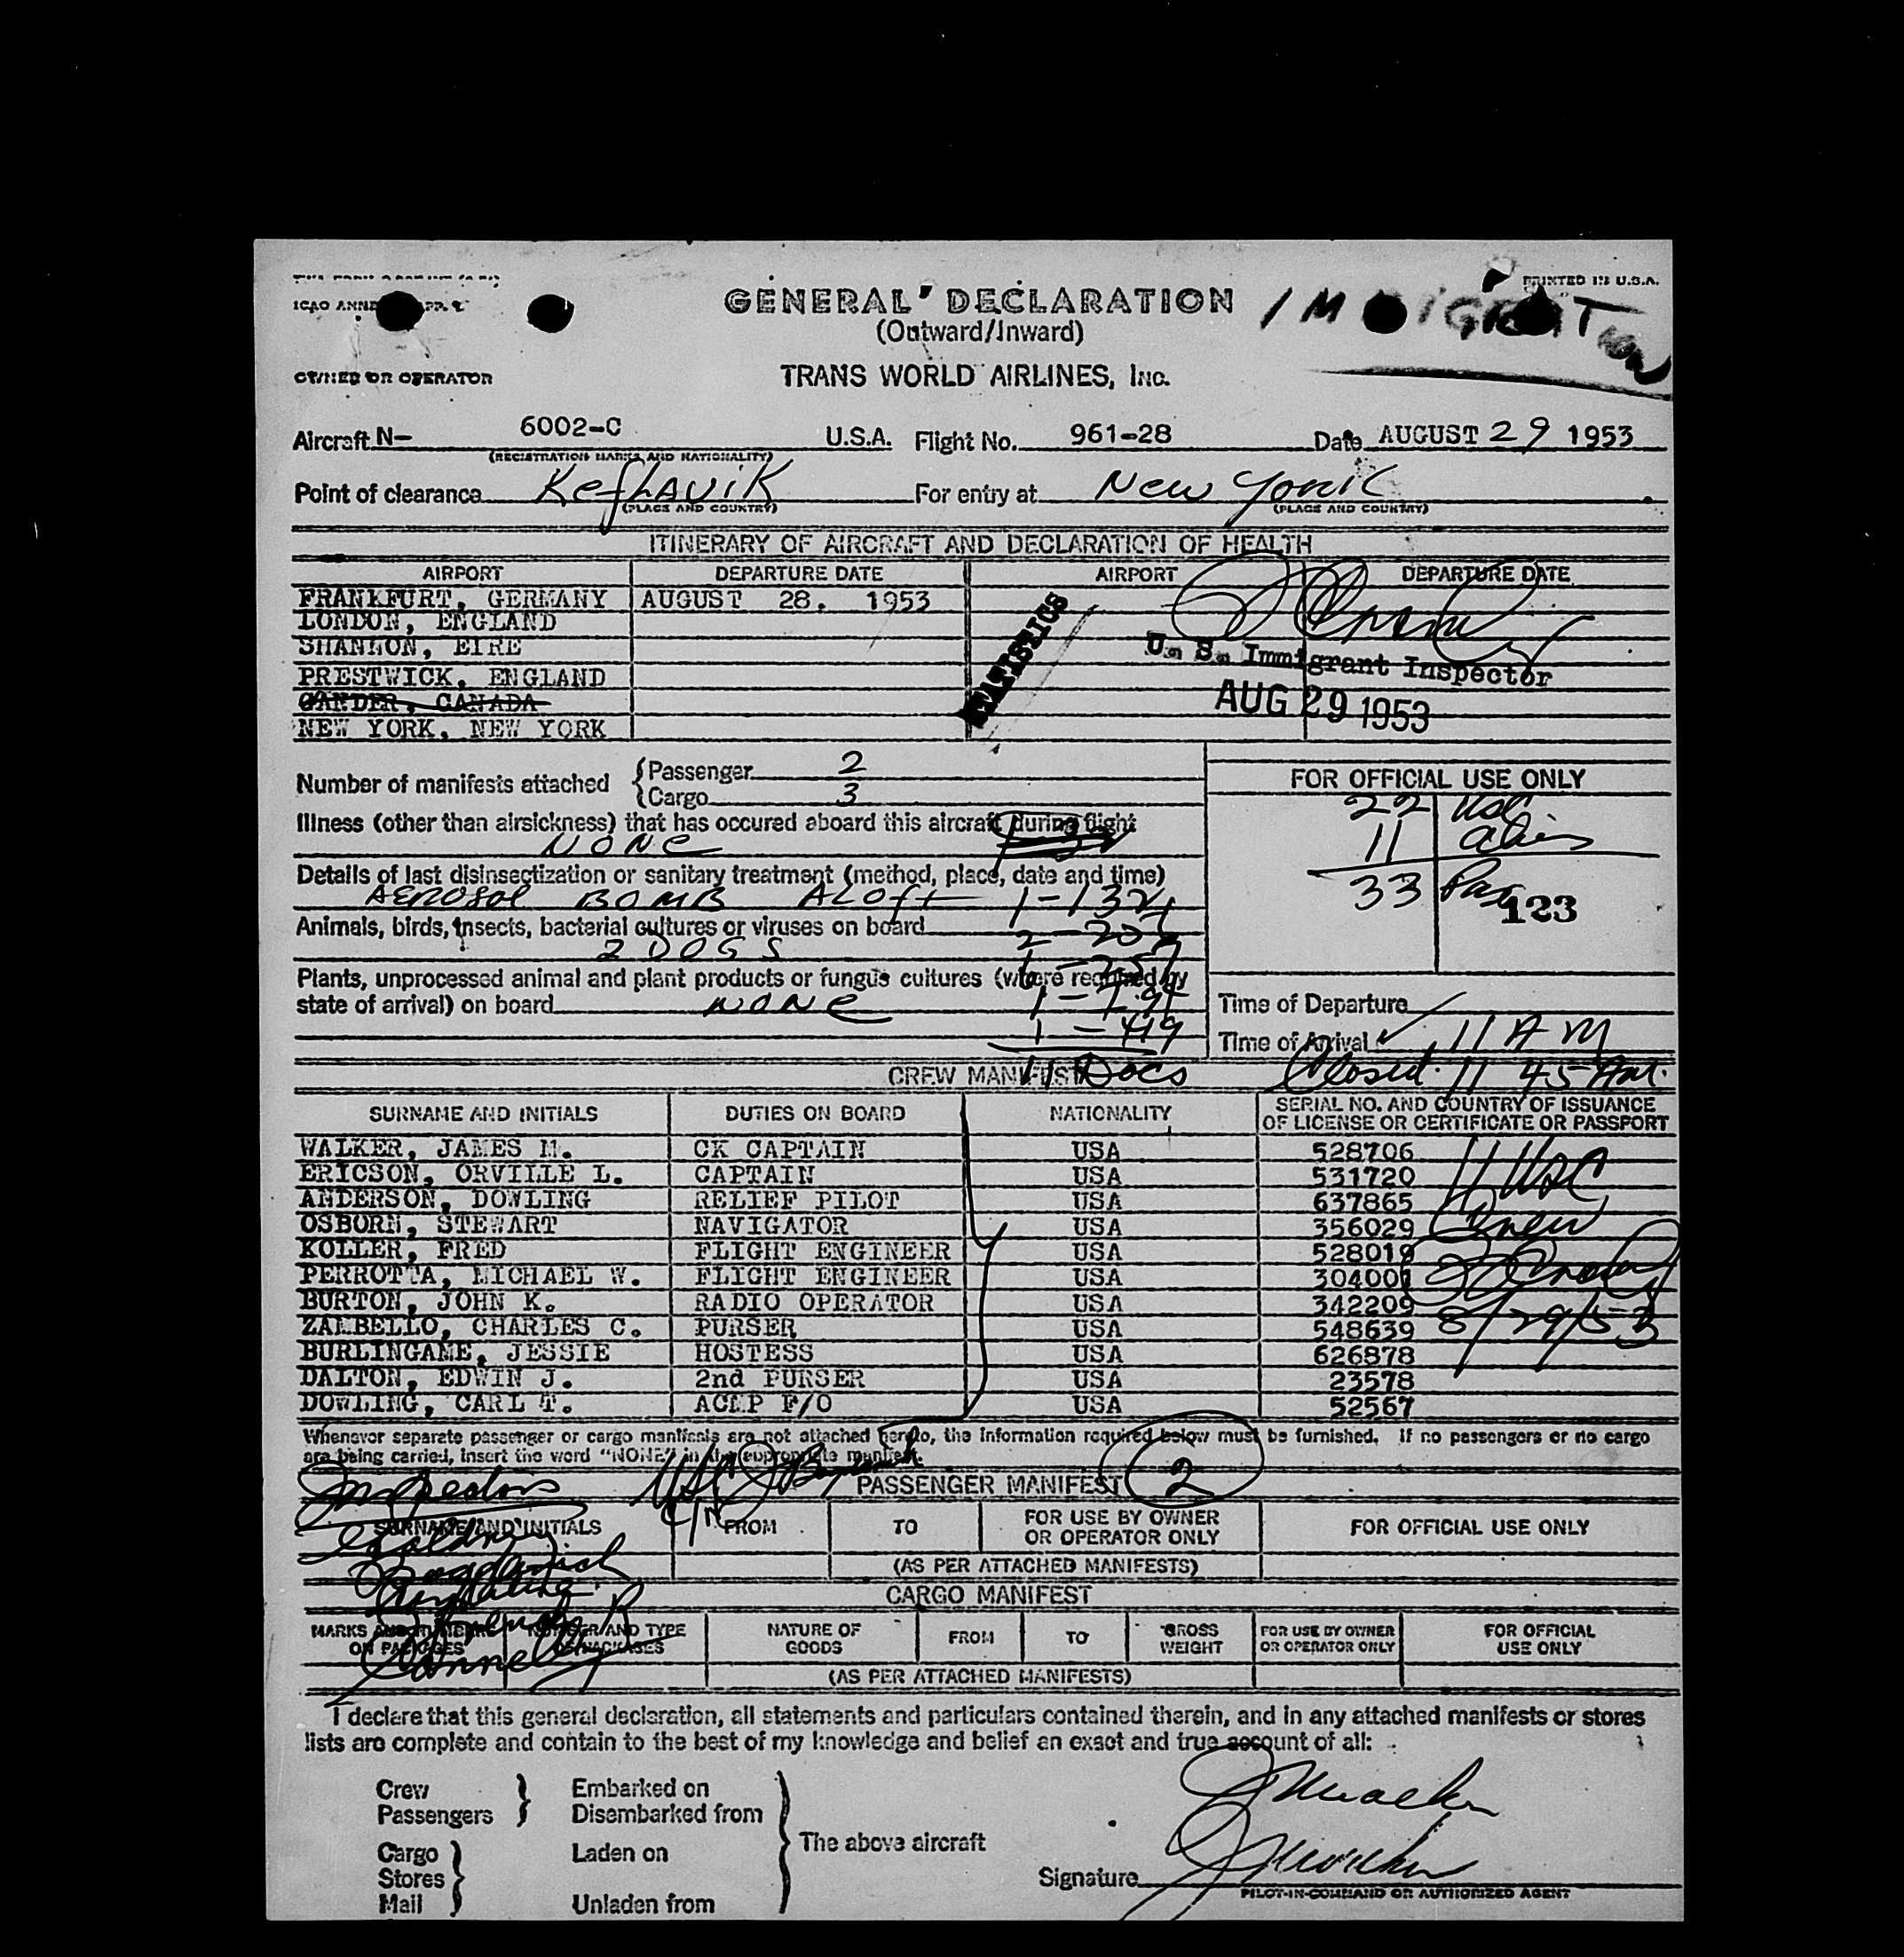 PRINTED IN U.S.A.
GENERAL DECLARATION
(Outward/Inward)
OWNER OR OPERATOR TRANS WORLD AIRLINES, INC.
Aircraft N- 6002-C U.S.A. Flight No. 961-28 Date AUGUST 29 1953
(REGISTRATION MARKS AND NATIONALITY)
Point of clearance Keflavik For entry at New York
(PLACE AND COUNTRY) (PLACE AND COUNTRY)
ITINERARY OF AIRCRAFT AND DECLARATION OF HEALTH
AIRPORT DEPARTURE DATE AIRPORT DEPARTURE DATE
FRANKFURT, GERMANY AUGUST 28, 1953
LONDON, ENGLAND
SHANNON, EIRE
PRESTWICK, ENGLAND
GANDER, CANADA
NEW YORK, NEW YORK
STATISTICS
U. S. Immigrant Inspector
AUG 29 1953
Number of manifests attached Passenger 2
Cargo 3
Illness (other than airsickness) that has occured aboard this aircraft during flight
NONE
Details of last disinsectization or sanitary treatment (method, place, date and time)
AEROSOL BOMB ALOFT
Animals, birds, insects, bacterial cultures or viruses on board
2 DOGS
Plants, unprocessed animal and plant products or fungus cultures (where required by
state of arrival) on board NONE
1 - 419
11 Docs
FOR OFFICIAL USE ONLY
22 USC
11 alien
33 Pax
123
Time of Departure
Time of Arrival 11 AM
Closed 11 45 AM.
CREW MANIFEST
SURNAME AND INITIALS DUTIES ON BOARD NATIONALITY SERIAL NO. AND COUNTRY OF ISSUANCE
OF LICENSE OR CERTIFICATE OR PASSPORT
WALKER, JAMES M. CK CAPTAIN USA 528706
ERICSON, ORVILLE L. CAPTAIN USA 531720
ANDERSON, DOWLING RELIEF PILOT USA 637865
OSBORN, STEWART NAVIGATOR USA 356029
KOLLER, FRED FLIGHT ENGINEER USA 528019
PERROTTA, MICHAEL W. FLIGHT ENGINEER USA 304001
BURTON, JOHN K. RADIO OPERATOR USA 342209
ZAMBELLO, CHARLES C. PURSER USA 548639
BURLINGAME, JESSIE HOSTESS USA 626878
DALTON, EDWIN J. 2nd PURSER USA 23578
DOWLING, CARL T. ACMP F/O USA 52567
11 USC
Crew
8/29/53
Whenever separate passenger or cargo manifests are not attached hereto, the information required below must be furnished. If no passengers or no cargo
are being carried, insert the word "NONE" in the appropriate manifest.
Inspectors
PASSENGER MANIFEST 2
SURNAME AND INITIALS FROM TO FOR USE BY OWNER
OR OPERATOR ONLY FOR OFFICIAL USE ONLY
(AS PER ATTACHED MANIFESTS)
CARGO MANIFEST
MARKS AND NUMBERS
ON PACKAGES NUMBER AND TYPE
OF PACKAGES NATURE OF
GOODS FROM TO GROSS
WEIGHT FOR USE BY OWNER
OR OPERATOR ONLY FOR OFFICIAL
USE ONLY
(AS PER ATTACHED MANIFESTS)
I declare that this general declaration, all statements and particulars contained therein, and in any attached manifests or stores
lists are complete and contain to the best of my knowledge and belief an exact and true account of all:
Crew Embarked on
Passengers Disembarked from
The above aircraft
Cargo Laden on
Stores
Mail Unladen from
Signature
PILOT-IN-COMMAND OR AUTHORIZED AGENT